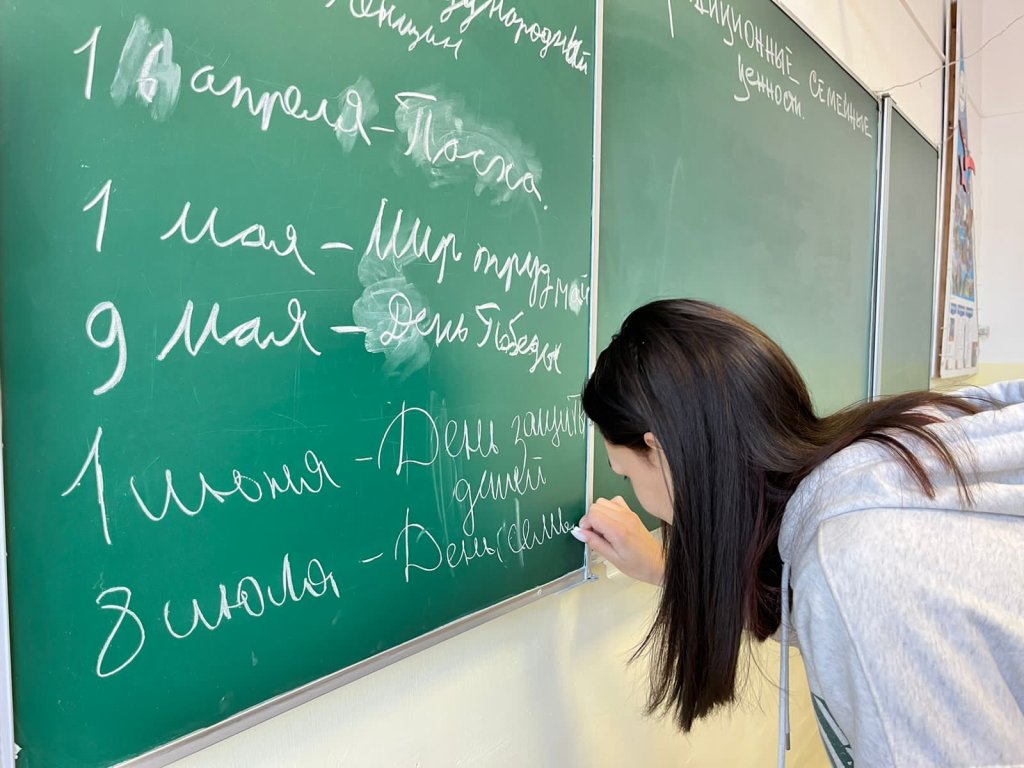 дународный
Женщин
16 апреля – Пасха.
1 мая – Мир труд май
9 мая – День Победы
1 июня – День защиты
детей
8 июля – День семь
диционные семейные
ценности.